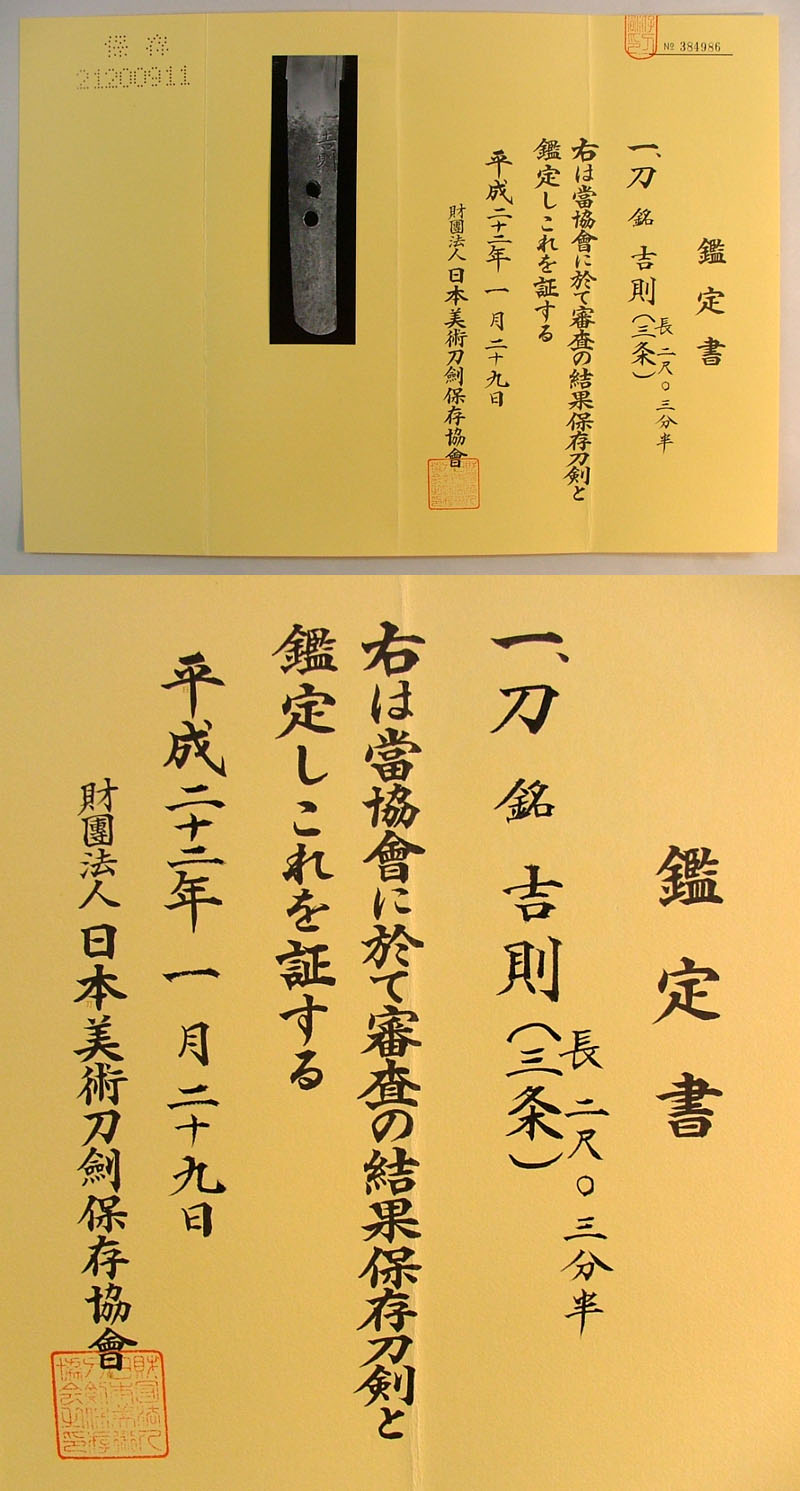 保存
21200911
№ 384986
鑑定書
一、刀 銘 吉則(三条)
長 二尺〇三分半
右は當協會に於て審査の結果保存刀剣と
鑑定しこれを証する
平成二十二年 一月二十九日
財團法人 日本美術刀劍保存協會
吉則
鑑定書
一、刀 銘 吉則(三条)
長 二尺〇三分半
右は當協會に於て審査の結果保存刀剣と
鑑定しこれを証する
平成二十二年 一月二十九日
財團法人 日本美術刀劍保存協會